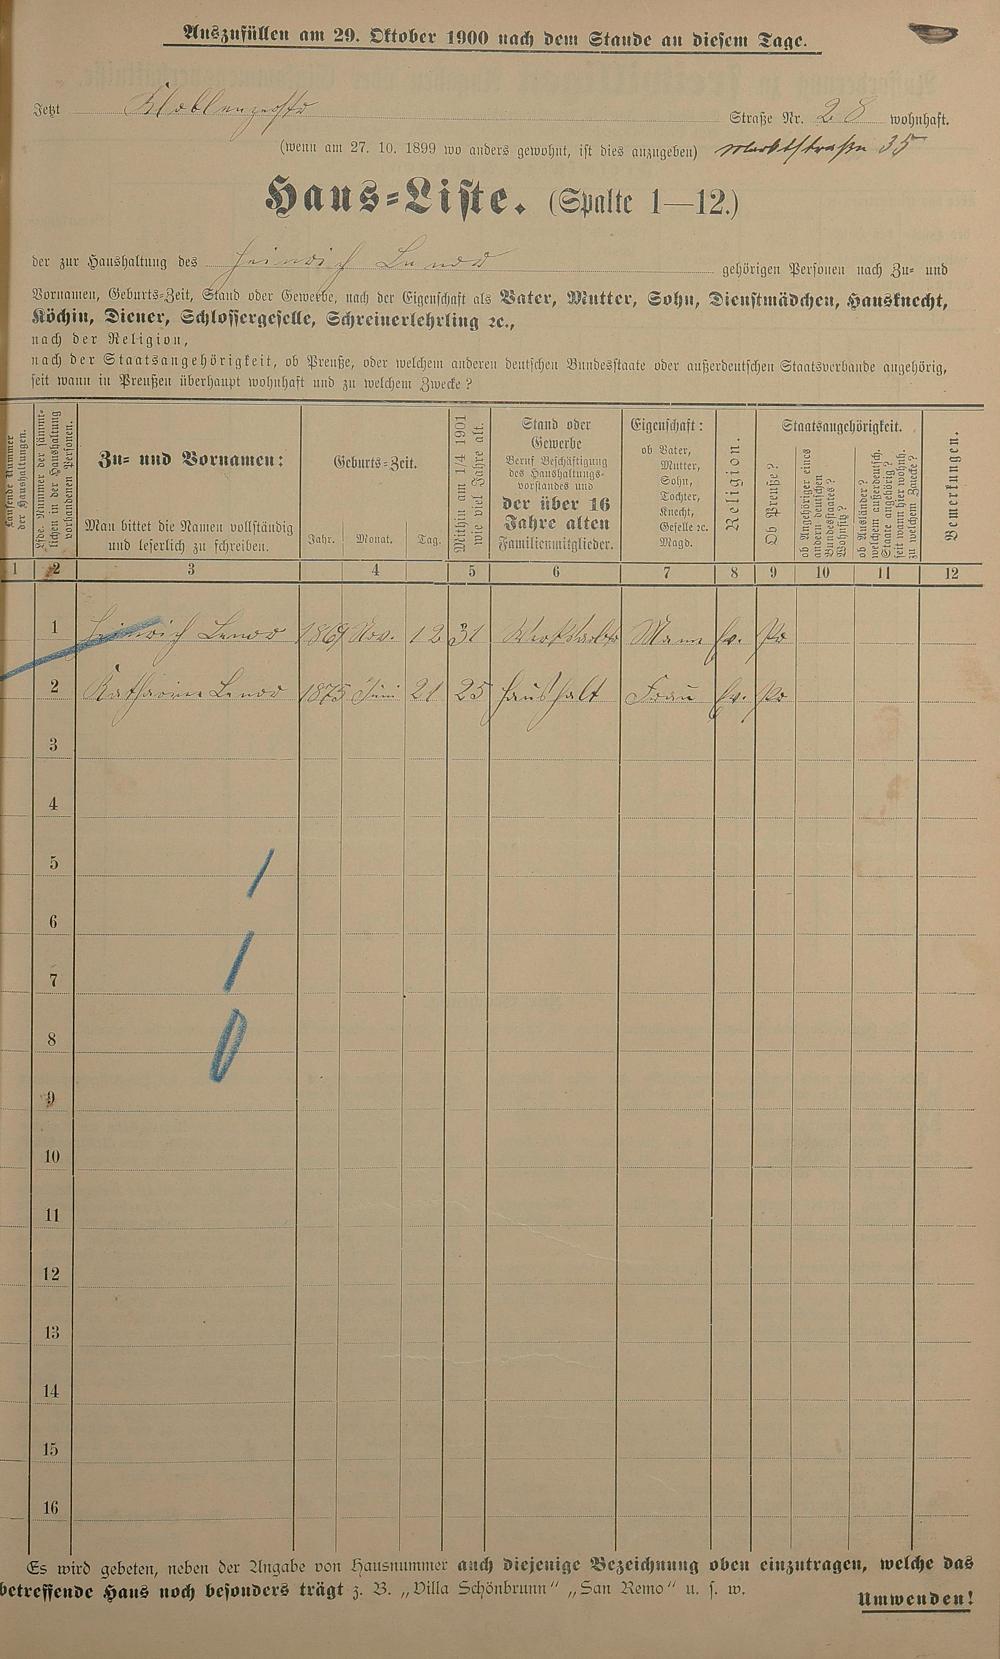 Auszufüllen am 29. Oktober 1900 nach dem Stande an diesem Tage.
Jetzt Koblenzerstr Straße Nr. 28 wohnhaft.
(wenn am 27. 10. 1899 wo anders gewohnt, ist dies anzugeben) Marktstraße 35
Haus=Liste. (Spalte 1—12.)
der zur Haushaltung des Heinrich gehörigen Personen nach Zu= und
Vornamen, Geburts=Zeit, Stand oder Gewerbe, nach der Eigenschaft als Vater, Mutter, Sohn, Dienstmädchen, Hausknecht,
Köchin, Diener, Schlossergeselle, Schreinerlehrling ꝛc.,
nach der Religion,
nach der Staatsangehörigkeit, ob Preuße, oder welchem anderen deutschen Bundesstaate oder außerdeutschen Staatsverbande angehörig,
seit wann in Preußen überhaupt wohnhaft und zu welchem Zwecke?
Laufende Nummer
der Haushaltungen.
Lfde. Nummer der sämmt=
lichen in der Haushaltung
vorhandenen Personen.
Zu= und Vornamen:
Man bittet die Namen vollständig
und leserlich zu schreiben.
Geburts=Zeit.
Jahr. Monat. Tag.
Mithin am 1/4 1901
wie viel Jahre alt.
Stand oder
Gewerbe
Beruf Beschäftigung
des Haushaltungs=
vorstandes und
der über 16
Jahre alten
Familienmitglieder.
Eigenschaft:
ob Vater,
Mutter,
Sohn,
Tochter,
Knecht,
Geselle ꝛc.
Magd.
Religion.
Staatsangehörigkeit.
Ob Preuße?
ob Angehöriger eines
andern deutschen
Bundesstaates?
Wohnsitz?
ob Ausländer?
welchem außerdeutsch.
Staate angehörig?
seit wann hier wohnh.
zu welchem Zwecke?
Bemerkungen.
1 2 3 4 5 6 7 8 9 10 11 12
1 Heinrich 1869 Nov. 12 31 Mann Ev. Pr
2 Katharina 1875 Juni 21 25 Haushalt Frau Ev. Pr
3
4
5
6
7
8
9
10
11
12
13
14
15
16
Es wird gebeten, neben der Angabe von Hausnummer auch diejenige Bezeichnung oben einzutragen, welche das
betreffende Haus noch besonders trägt z. B. „Villa Schönbrunn“ „San Remo“ u. s. w.
Umwenden!